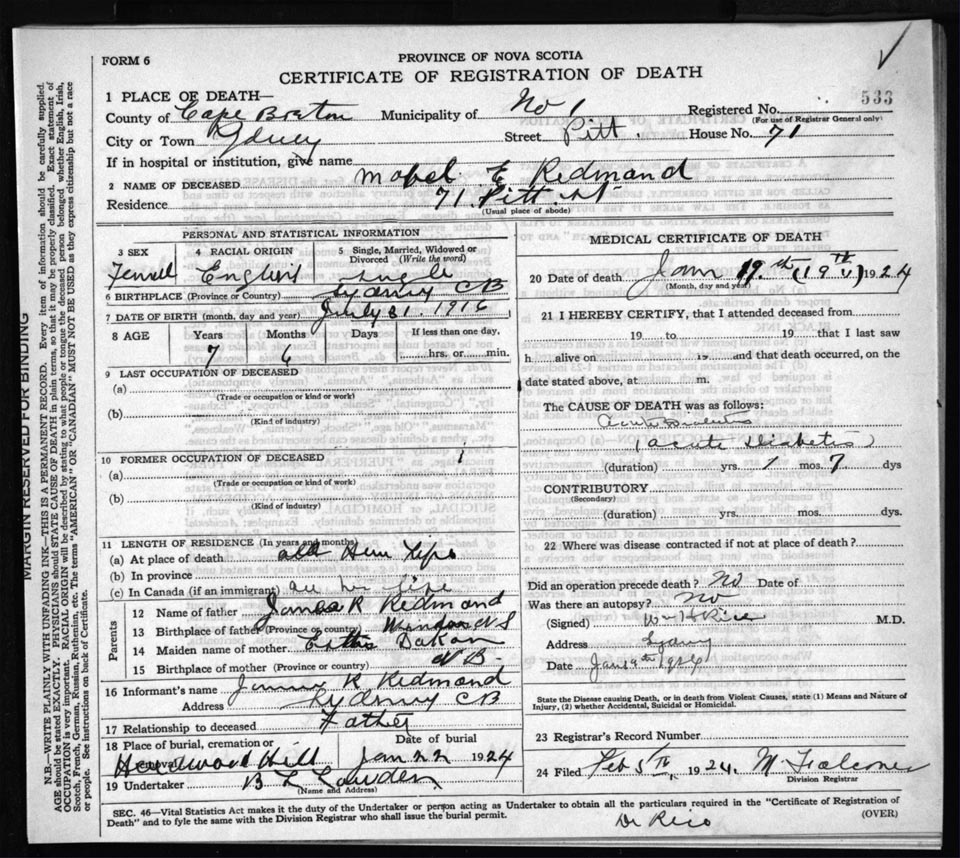 FORM 6
PROVINCE OF NOVA SCOTIA
CERTIFICATE OF REGISTRATION OF DEATH
533
1 PLACE OF DEATH—
County of Cape Breton Municipality of No 1 Registered No.
(For use of Registrar General only)
City or Town Sydney Street Pitt. House No. 71
If in hospital or institution, give name
2 NAME OF DECEASED Mabel E Redmond
Residence 71 Pitt St
(Usual place of abode)
PERSONAL AND STATISTICAL INFORMATION
3 SEX 4 RACIAL ORIGIN 5 Single, Married, Widowed or Divorced (Write the word)
English Single
6 BIRTHPLACE (Province or Country) Sydney CB
7 DATE OF BIRTH (month, day and year) July 31. 1916
8 AGE Years Months Days If less than one day,
7 6 hrs. or min.
9 LAST OCCUPATION OF DECEASED
(a)
(Trade or occupation or kind of work)
(b)
(Kind of industry)
10 FORMER OCCUPATION OF DECEASED
(a)
(Trade or occupation or kind of work)
(b)
(Kind of industry)
11 LENGTH OF RESIDENCE (In years and months)
(a) At place of death all Life
(b) In province
(c) In Canada (if an immigrant) life
Parents
12 Name of father James R Redmond
13 Birthplace of father (Province or country) Windsor NS
14 Maiden name of mother
15 Birthplace of mother (Province or country) NB.
16 Informant's name R Redmond
Address Sydney CB
17 Relationship to deceased Father
18 Place of burial, cremation or removal Hardwood Hill Date of burial Jan 22 1924
19 Undertaker B L
(Name and Address)
MEDICAL CERTIFICATE OF DEATH
20 Date of death Jan 19th (19th) 1924
(Month, day and year)
21 I HEREBY CERTIFY, that I attended deceased from
19 to 19 that I last saw
h alive on 19 and that death occurred, on the
date stated above, at m.
The CAUSE OF DEATH was as follows:
(acute Diabetes)
(duration) yrs. 1 mos. 7 dys
CONTRIBUTORY
(Secondary)
(duration) yrs. mos. dys.
22 Where was disease contracted if not at place of death?
Did an operation precede death? No Date of
Was there an autopsy? No
(Signed) Wm H Rice M.D.
Address Sydney
Date
State the Disease causing Death, or in death from Violent Causes, state (1) Means and Nature of
Injury, (2) whether Accidental, Suicidal or Homicidal.
23 Registrar's Record Number
24 Filed Feb 5th, 1924. M Falconer
Division Registrar
SEC. 46—Vital Statistics Act makes it the duty of the Undertaker or person acting as Undertaker to obtain all the particulars required in the "Certificate of Registration of
Death" and to fyle the same with the Division Registrar who shall issue the burial permit.
(OVER)
Dr Rice
MARGIN RESERVED FOR BINDING
N.B.—WRITE PLAINLY WITH UNFADING INK—THIS IS A PERMANENT RECORD. Every item of information should be carefully supplied.
AGE should be stated EXACTLY. PHYSICIANS should STATE CAUSE OF DEATH in plain terms, so that it may be properly classified. Exact statement of
OCCUPATION is very important. RACIAL ORIGIN will be described by stating to what people or tongue the deceased person belonged whether English, Irish,
Scotch, French, German, Russian, Ruthenian, etc. The terms "AMERICAN" or "CANADIAN" MUST NOT BE USED as they express citizenship but not a race
or people. See instructions on back of Certificate.